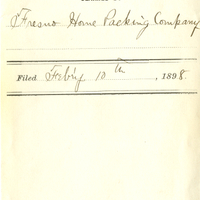 Fresno Home Packing Company
Filed Feb'y 10th, 1898